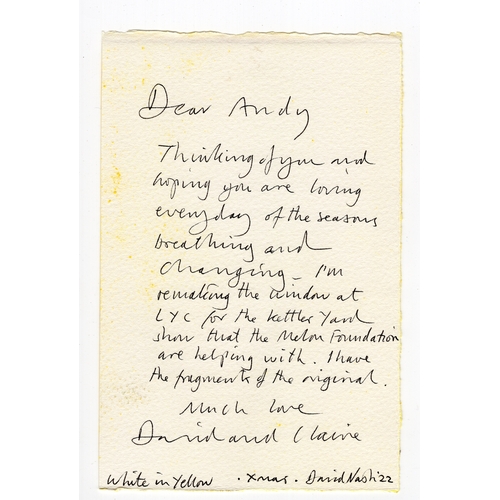 Dear Andy
Thinking of you and
hoping you are loving
everyday of the seasons
breathing and
changing - I'm
remaking the window at
LYC for the Kettles Yard
show that the Melon Foundation
are helping with. I have
the fragments of the original.
Much love
David and Claire
White in Yellow . Xmas . David Nash '22